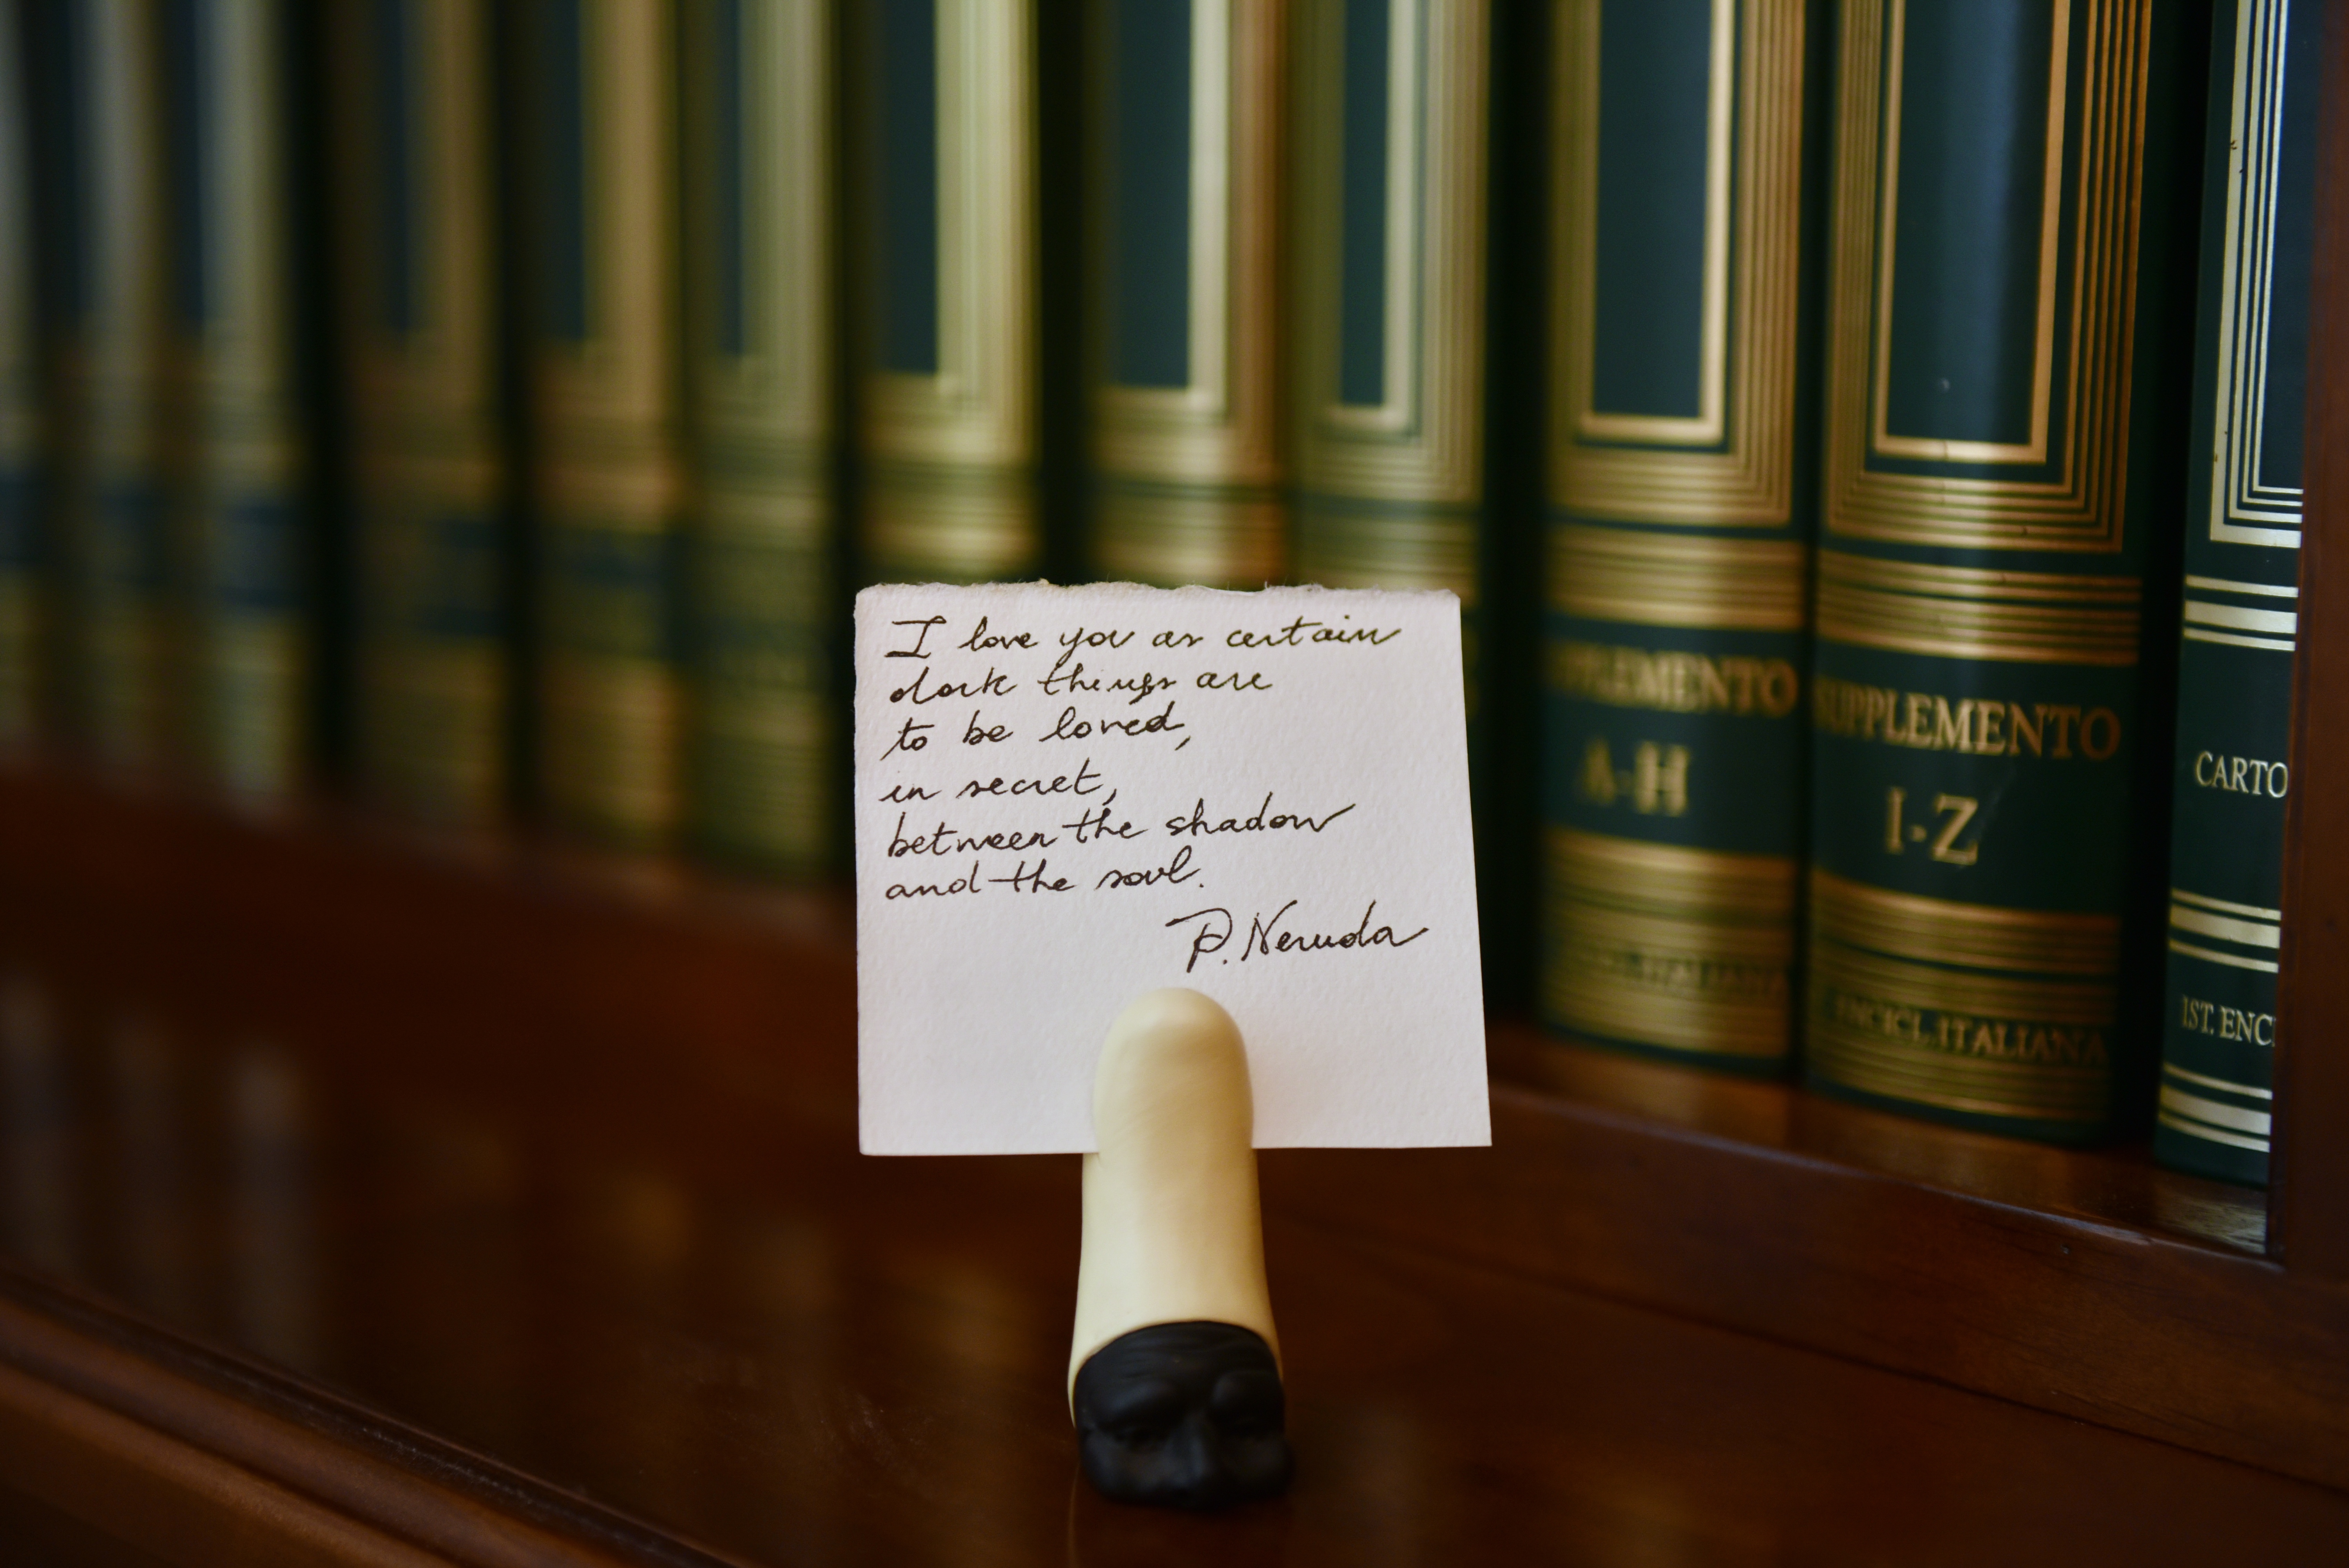 I love you as certain
dark things are
to be loved,
in secret,
between the shadow
and the soul.
P. Neruda
SUPPLEMENTO
A-H
SUPPLEMENTO
I-Z
ENCICL. ITALIANA
CARTO
IST. ENC